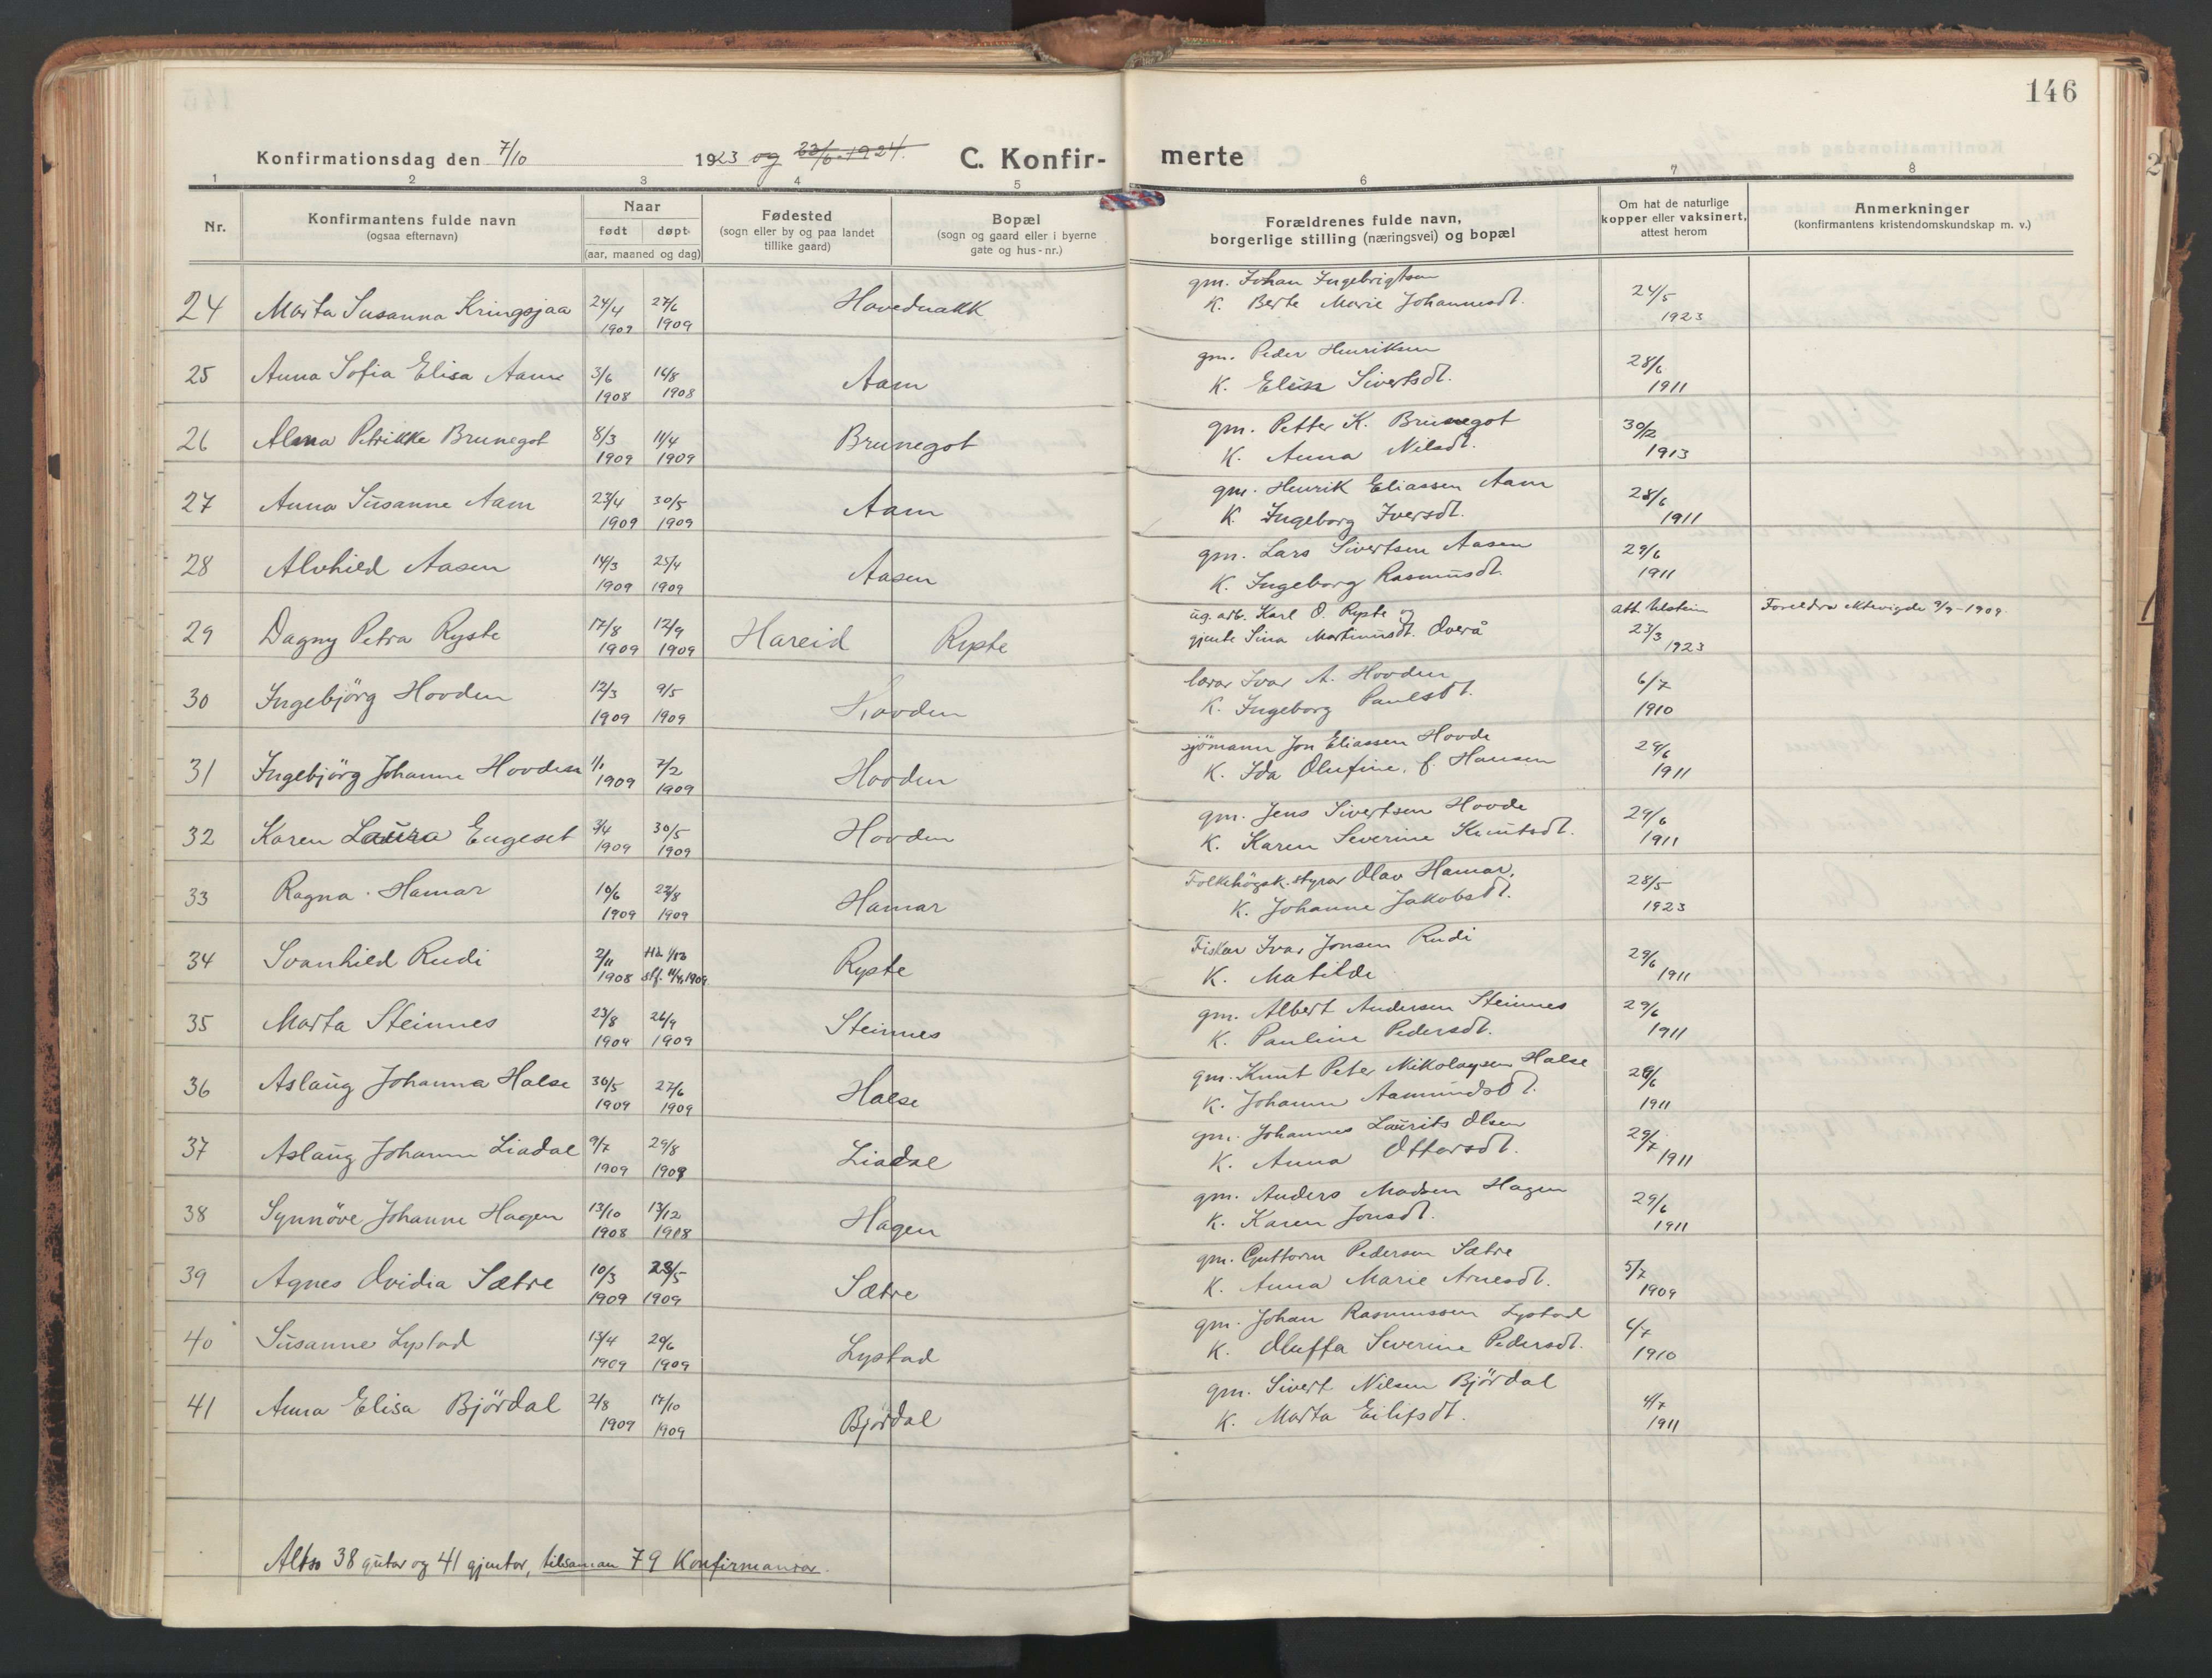 146
Konfirmationsdag den 7/10 1923 og 23/6 1924. C. Konfir- merte
1 2 3 4 5 6 7 8
Nr. Konfirmantens fulde navn (ogsaa efternavn) Naar født døpt (aar, maaned og dag) Fødested (sogn eller by og paa landet tillike gaard) Bopæl (sogn og gaard eller i byerne gate og hus-nr.) Forældrenes fulde navn, borgerlige stilling (næringsvei) og bopæl Om hat de naturlige kopper eller vaksinert, attest herom Anmerkninger (konfirmantens kristendomskundskap m. v.)
24 Marta Susanna Kringsjaa 24/4 1909 27/6 1909 Hovednakk gm. Johan Ingebrigtsen K. Berte Marie Johannesdt. 24/5 1923
25 Anna Sofia Elisa Aam 3/6 1908 16/8 1908 Aam gm. Peder Henriksen K. Elisa Sivertsdt. 28/6 1911
26 Alma Petrikke Brunegot 8/3 1909 11/4 1909 Brunegot gm. Petter K. Brunegot K. Anna Nilsdt. 30/12 1913
27 Anna Susanne Aam 23/4 1909 30/5 1909 Aam gm. Henrik Eliassen Aam K. Ingeborg Iversdt. 28/6 1911
28 Alvhild Aasen 14/3 1909 25/4 1909 Aasen gm. Lars Sivertsen Aasen K. Ingeborg Rasmusdt. 29/6 1911
29 Dagny Petra Ryste 17/8 1909 12/9 1909 Hareid Ryste ug. arb. Karl O. Ryste og gjente Sina Martinusdt. Overå att. Ulstein 23/3 1923 Foreldra ektevigde 9/9-1909.
30 Ingebjörg Hovden 12/3 1909 9/5 1909 Hovden lærar Ivar A. Hovden K. Ingeborg Paulsdt. 6/7 1910
31 Ingebjörg Johanne Hovden 1/1 1909 7/2 1909 Hovden sjömann Jon Eliassen Hovde K. Ida Olufine, f. Hansen 29/6 1911
32 Karen Laura Engeset 3/4 1909 30/5 1909 Hovden gm. Jens Sivertsen Hovde K. Karen Severine Knutsdt. 29/6 1911
33 Ragna Hamar 10/6 1909 22/8 1909 Hamar Folkehögsk.styrar Olav Hamar, K. Johanne Jakobsdt. 28/5 1923
34 Svanhild Rudi 2/11 1908 stf. 11/4 1909 Ryste Fiskar Ivar Jonsen Rudi K. Matilde 29/6 1911
35 Marta Steinnes 23/8 1909 26/9 1909 Steinnes gm. Albert Andersen Steinnes K. Pauline Pedersdt. 29/6 1911
36 Aslaug Johanna Halse 30/5 1909 27/6 1909 Halse gm. Knut Peter Nikolaysen Halse K. Johanne Aamundsdt. 29/6 1911
37 Aslaug Johanne Liadal 9/7 1909 29/8 1909 Liadal gm. Johannes Laurits Olsen K. Anna Ottarsdt. 29/7 1911
38 Synnöve Johanne Hagen 13/10 1908 13/12 1908 Hagen gm. Anders Madsen Hagen K. Karen Jonsdt. 29/6 1911
39 Agnes Ovidia Sætre 10/3 1909 23/5 1909 Sætre gm. Guttorm Pedersen Sætre K. Anna Marie Arnesdt. 5/7 1909
40 Susanne Lystad 13/4 1909 29/6 1909 Lystad gm. Johan Rasmussen Lystad K. Oluffa Severine Pedersdt. 6/7 1910
41 Anna Elisa Björdal 2/8 1909 17/10 1909 Björdal gm. Sivert Nilsen Björdal K. Marta Eilifsdt. 4/7 1911
Altso 38 gutar og 41 gjentor, tilsaman 79 Konfirmantar.